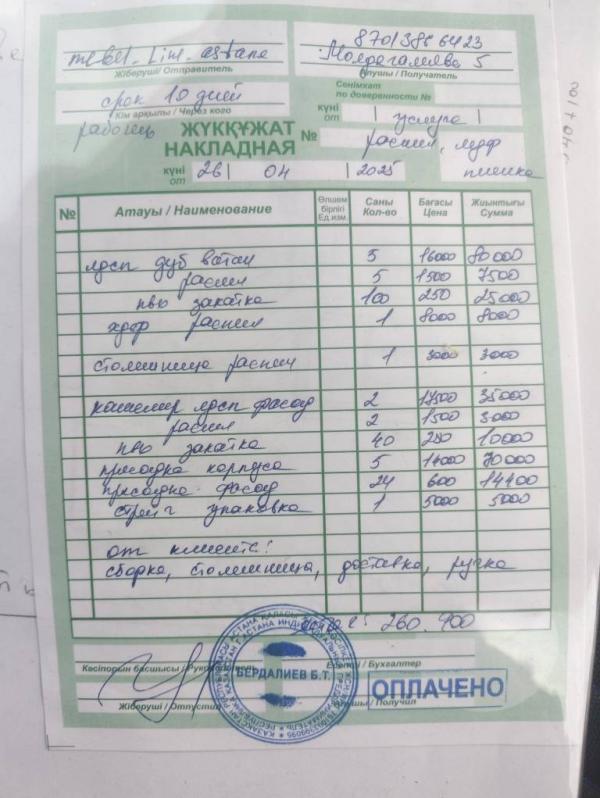 mebel. Lim. astana
Жіберуші / Отправитель
8701386 6423
Молдагалиева 5
Алушы / Получатель
срок 10 дней
Кім арқылы / Через кого
рабочец
Сенімхат
по доверенности №
күні
от
услуга
ЖҮКҚҰЖАТ
НАКЛАДНАЯ №
распил, мдф
пленка
күні
от 26 04 2025
№ Атауы / Наименование Өлшем бірлігі Ед.изм. Саны Кол-во Бағасы Цена Жиынтығы Сумма
лдсп дуб вотан 5 16000 80000
распил 5 1500 7500
пвх закатка 100 250 25000
хдф распил 1 8000 8000
столешница распил 1 3000 3000
кашемир лдсп фасад 2 17500 35000
распил 2 1500 3000
пвх закатка 40 250 10000
присадка корпуса 5 14000 70000
присадка фасад 24 600 14400
стрейч упаковка 1 5000 5000
от клиента!
сборка, столешница, доставка, ручка
260.900
Кәсіпорын басшысы / Руководитель
Есепші / Бухгалтер
БЕРДАЛИЕВ Б.Т.
ОПЛАЧЕНО
Жіберуші / Отпустил
Алушы / Получил